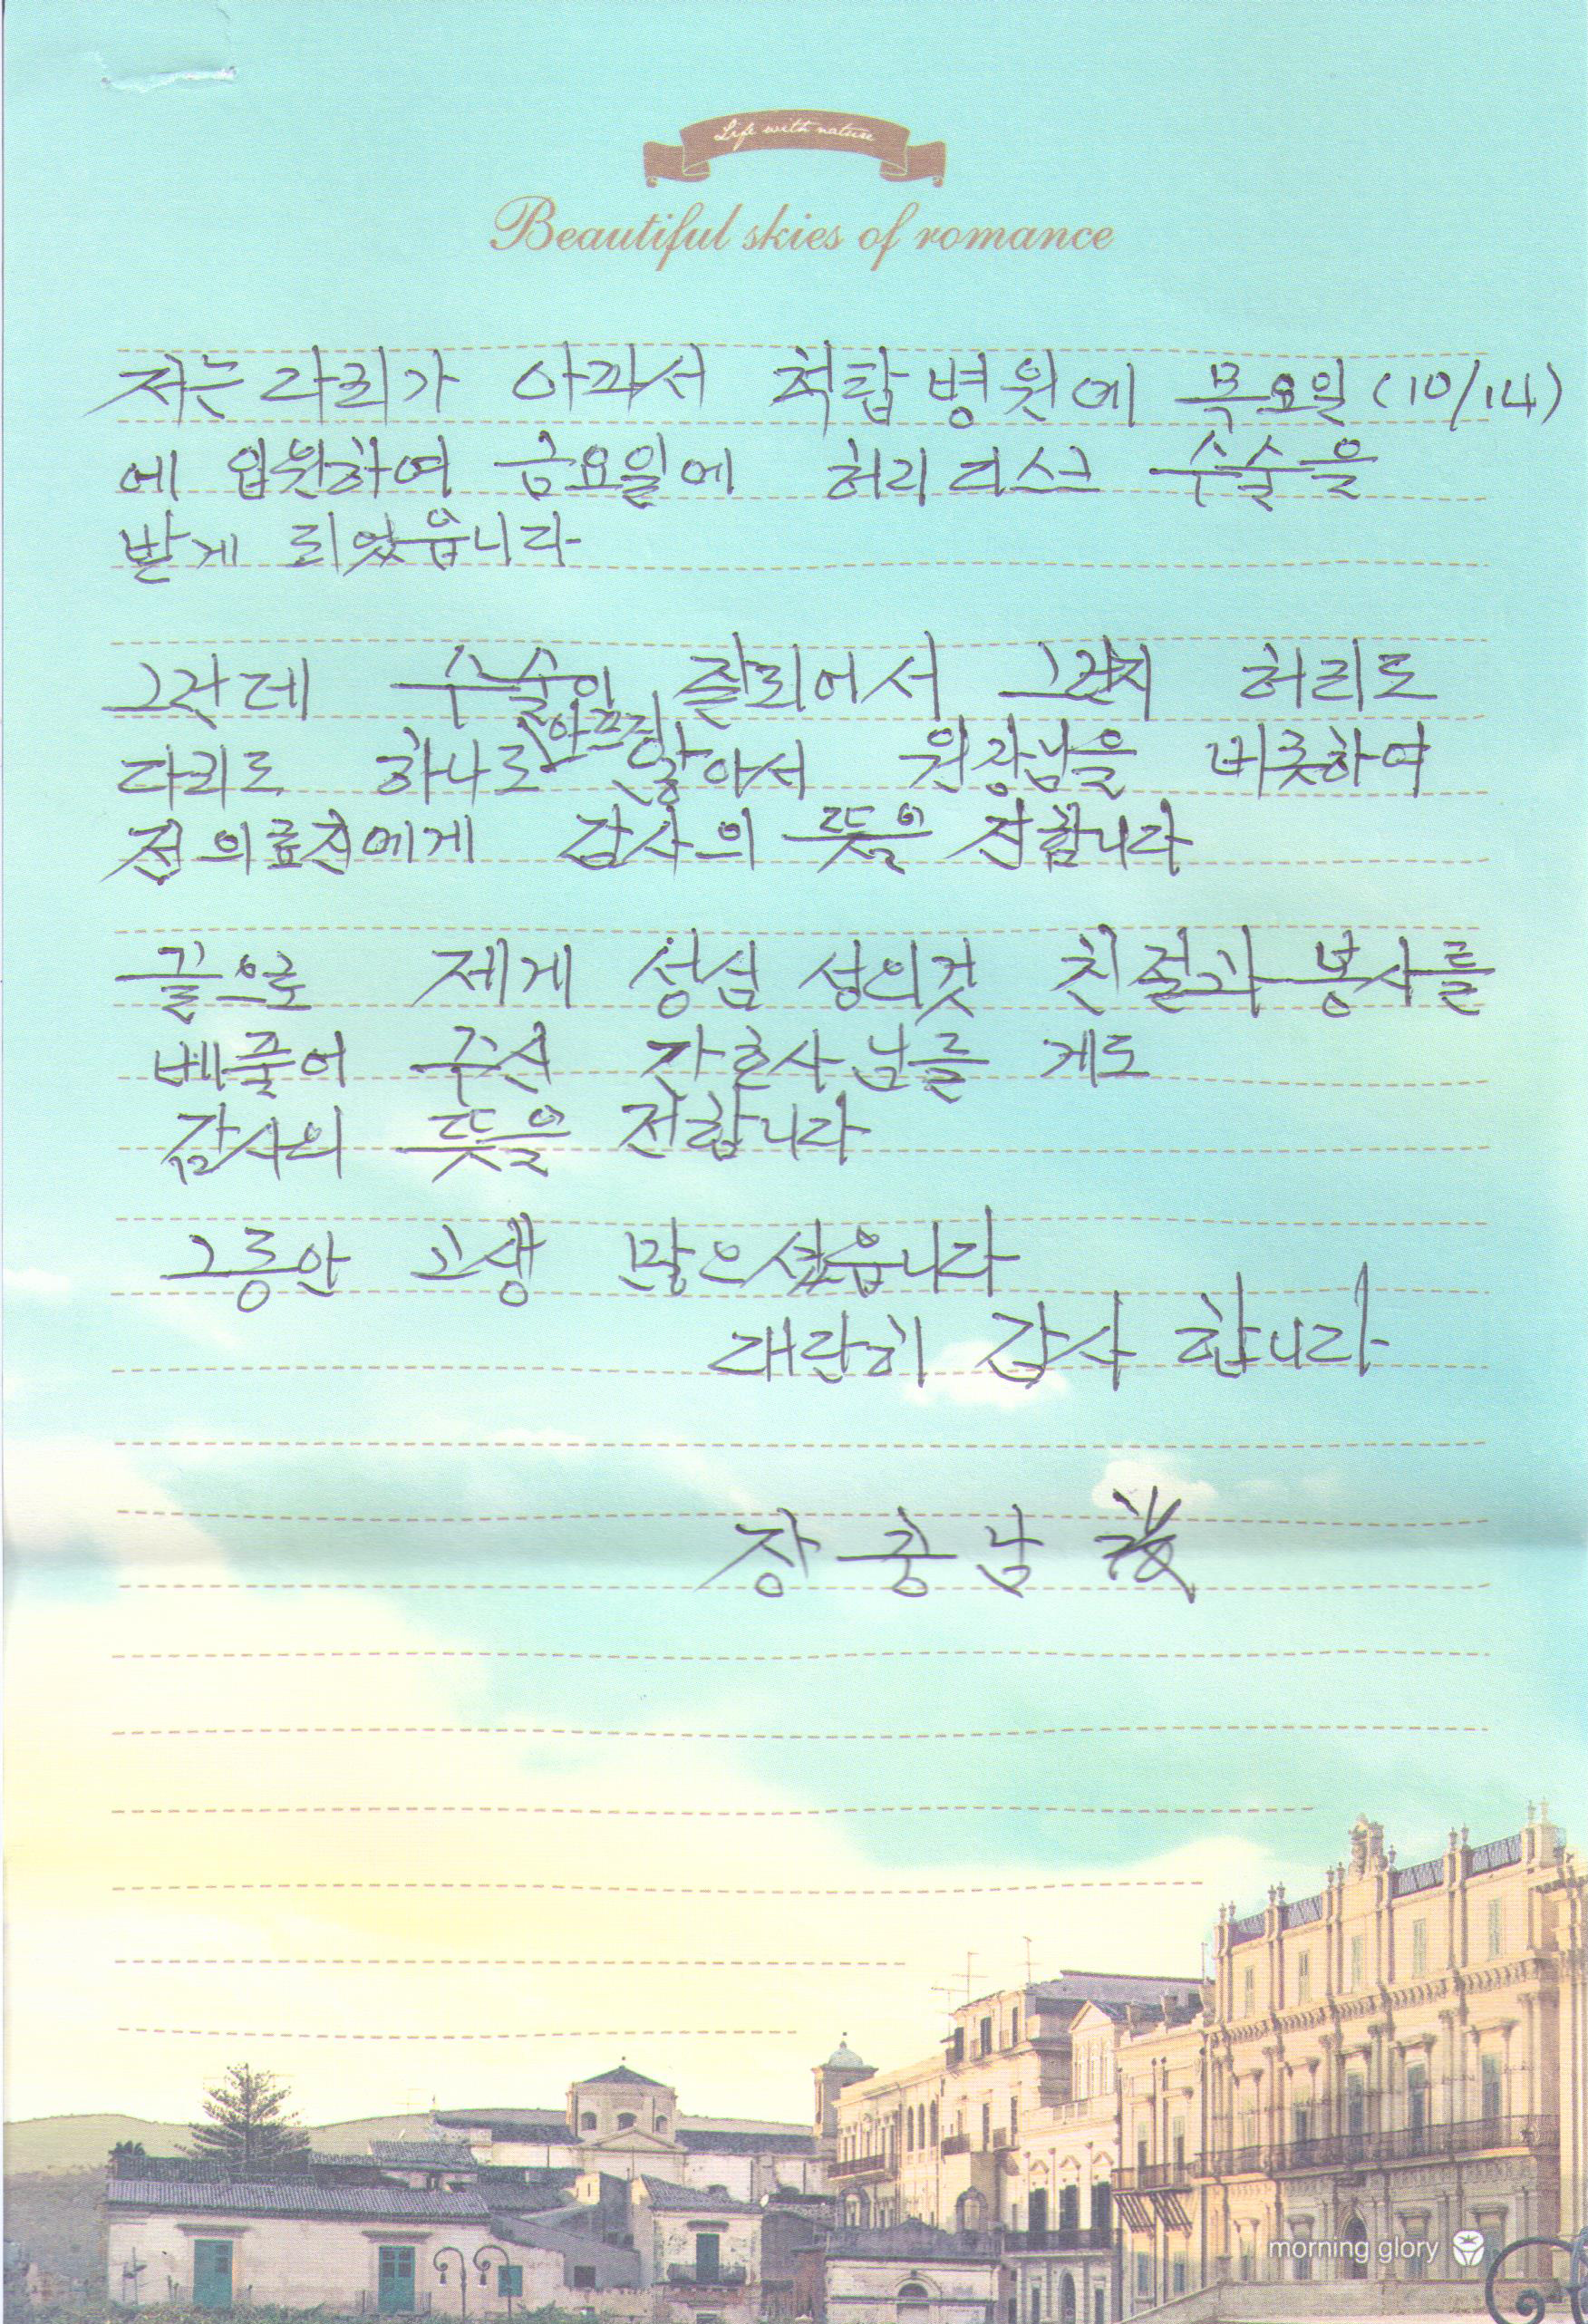 Life with nature
Beautiful skies of romance
저는 다리가 아파서 척탑병원에 목요일(10/14)
에 입원하여 금요일에 허리디스크 수술을
받게 되었읍니다
그런데 수술이 잘되어서 그런지 허리도
다리도 하나도 아프지 않아서 원장님을 비롯하여
전 의료진에게 감사의 뜻을 전합니다
끝으로 제게 성심 성의것 친절과 봉사를
베풀어 주신 간호사님들 게도
감사의 뜻을 전합니다
그동안 고생 많으셨읍니다
대단히 감사 합니다
장충남
morning glory